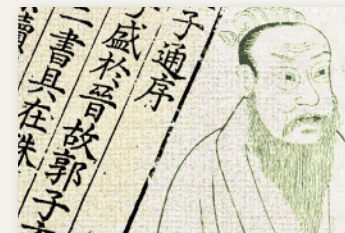 子通序
盛於晉故郭子
二書具在殊